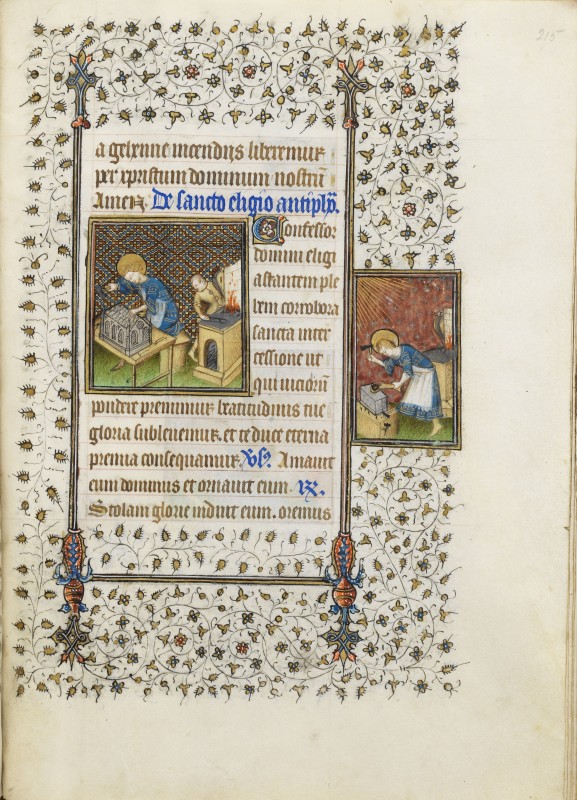 215
a gehenne incendijs liberemur
per xpristum dominum nostrū
Amen. De sancto eligio antiphō.
Confessor
domini eligi
astantem ple
bem corrobora
sancta inter
cessione ut
qui uiciorū
pondere premimur beatitudinis tue
gloria subleuemur. et te duce eterna
premia consequamur. Vs. Amauit
eum dominus et ornauit eum. Rx.
Stolam glorie induit eum. oremus